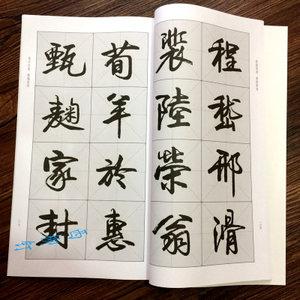 程嵇邢滑
裴陸榮翁
荀羊於惠
甄麴家封